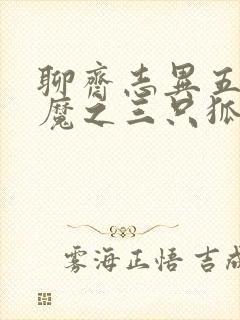 聊齋志異五
魔之三只狐
雾海正悟 吉成